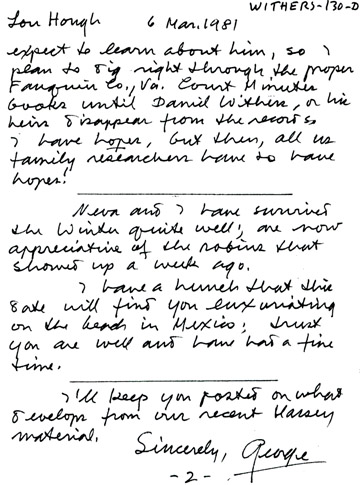 WITHERS-130-D
Lou Hough 6 Mar. 1981
expect to learn about him, so I
plan to dig right through the proper
Fauquier Co., Va. Court Minutes
Books until Daniel Withers, or his
heirs disappear from the records
I have hopes, but then, all us
family researchers have to have
hopes!
Neva and I have survived
the Winter quite well; are now
appreciative of the robins that
showed up a week ago.
I have a hunch that this
date will find you luxuriating
on the beach in Mexico; trust
you are well and have had a fine
time.
I'll keep you posted on what
develops from our recent
material.
Sincerely, George
-2-